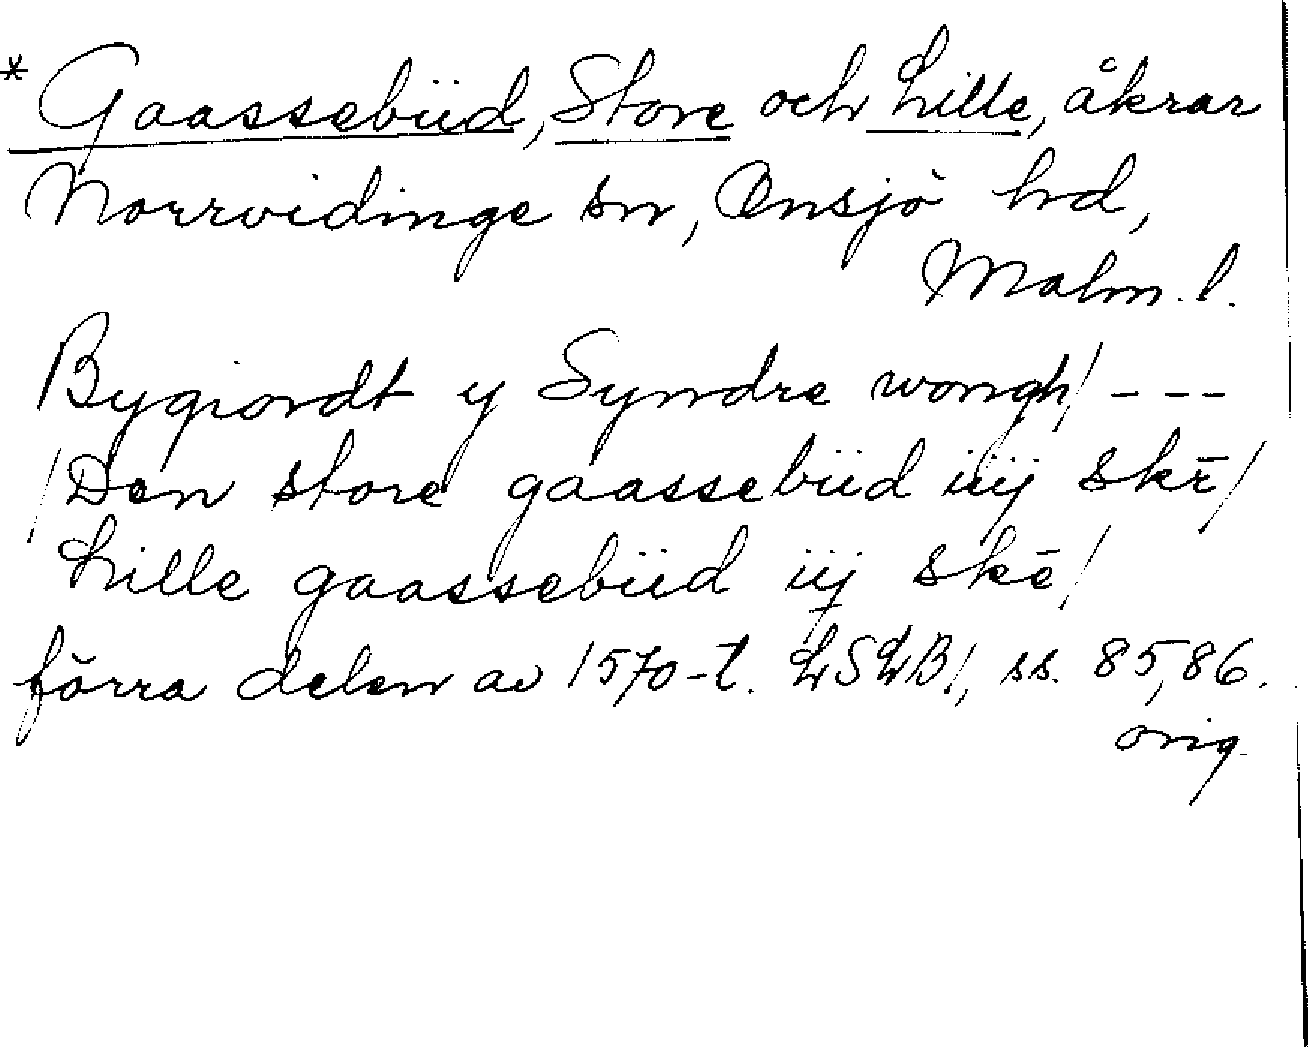 * Gaassebüd, Store och Lille, åkrar
Norrvidinge sn, Onsjö hd,
Malm. l.
Bygiordt y Syndre wongh/ ---
/Den store gaassebüd iiij skē/
Lille gaassebüd iij skē/
förra delen av 1570-t. LSLB1, ss. 85,86.
orig.